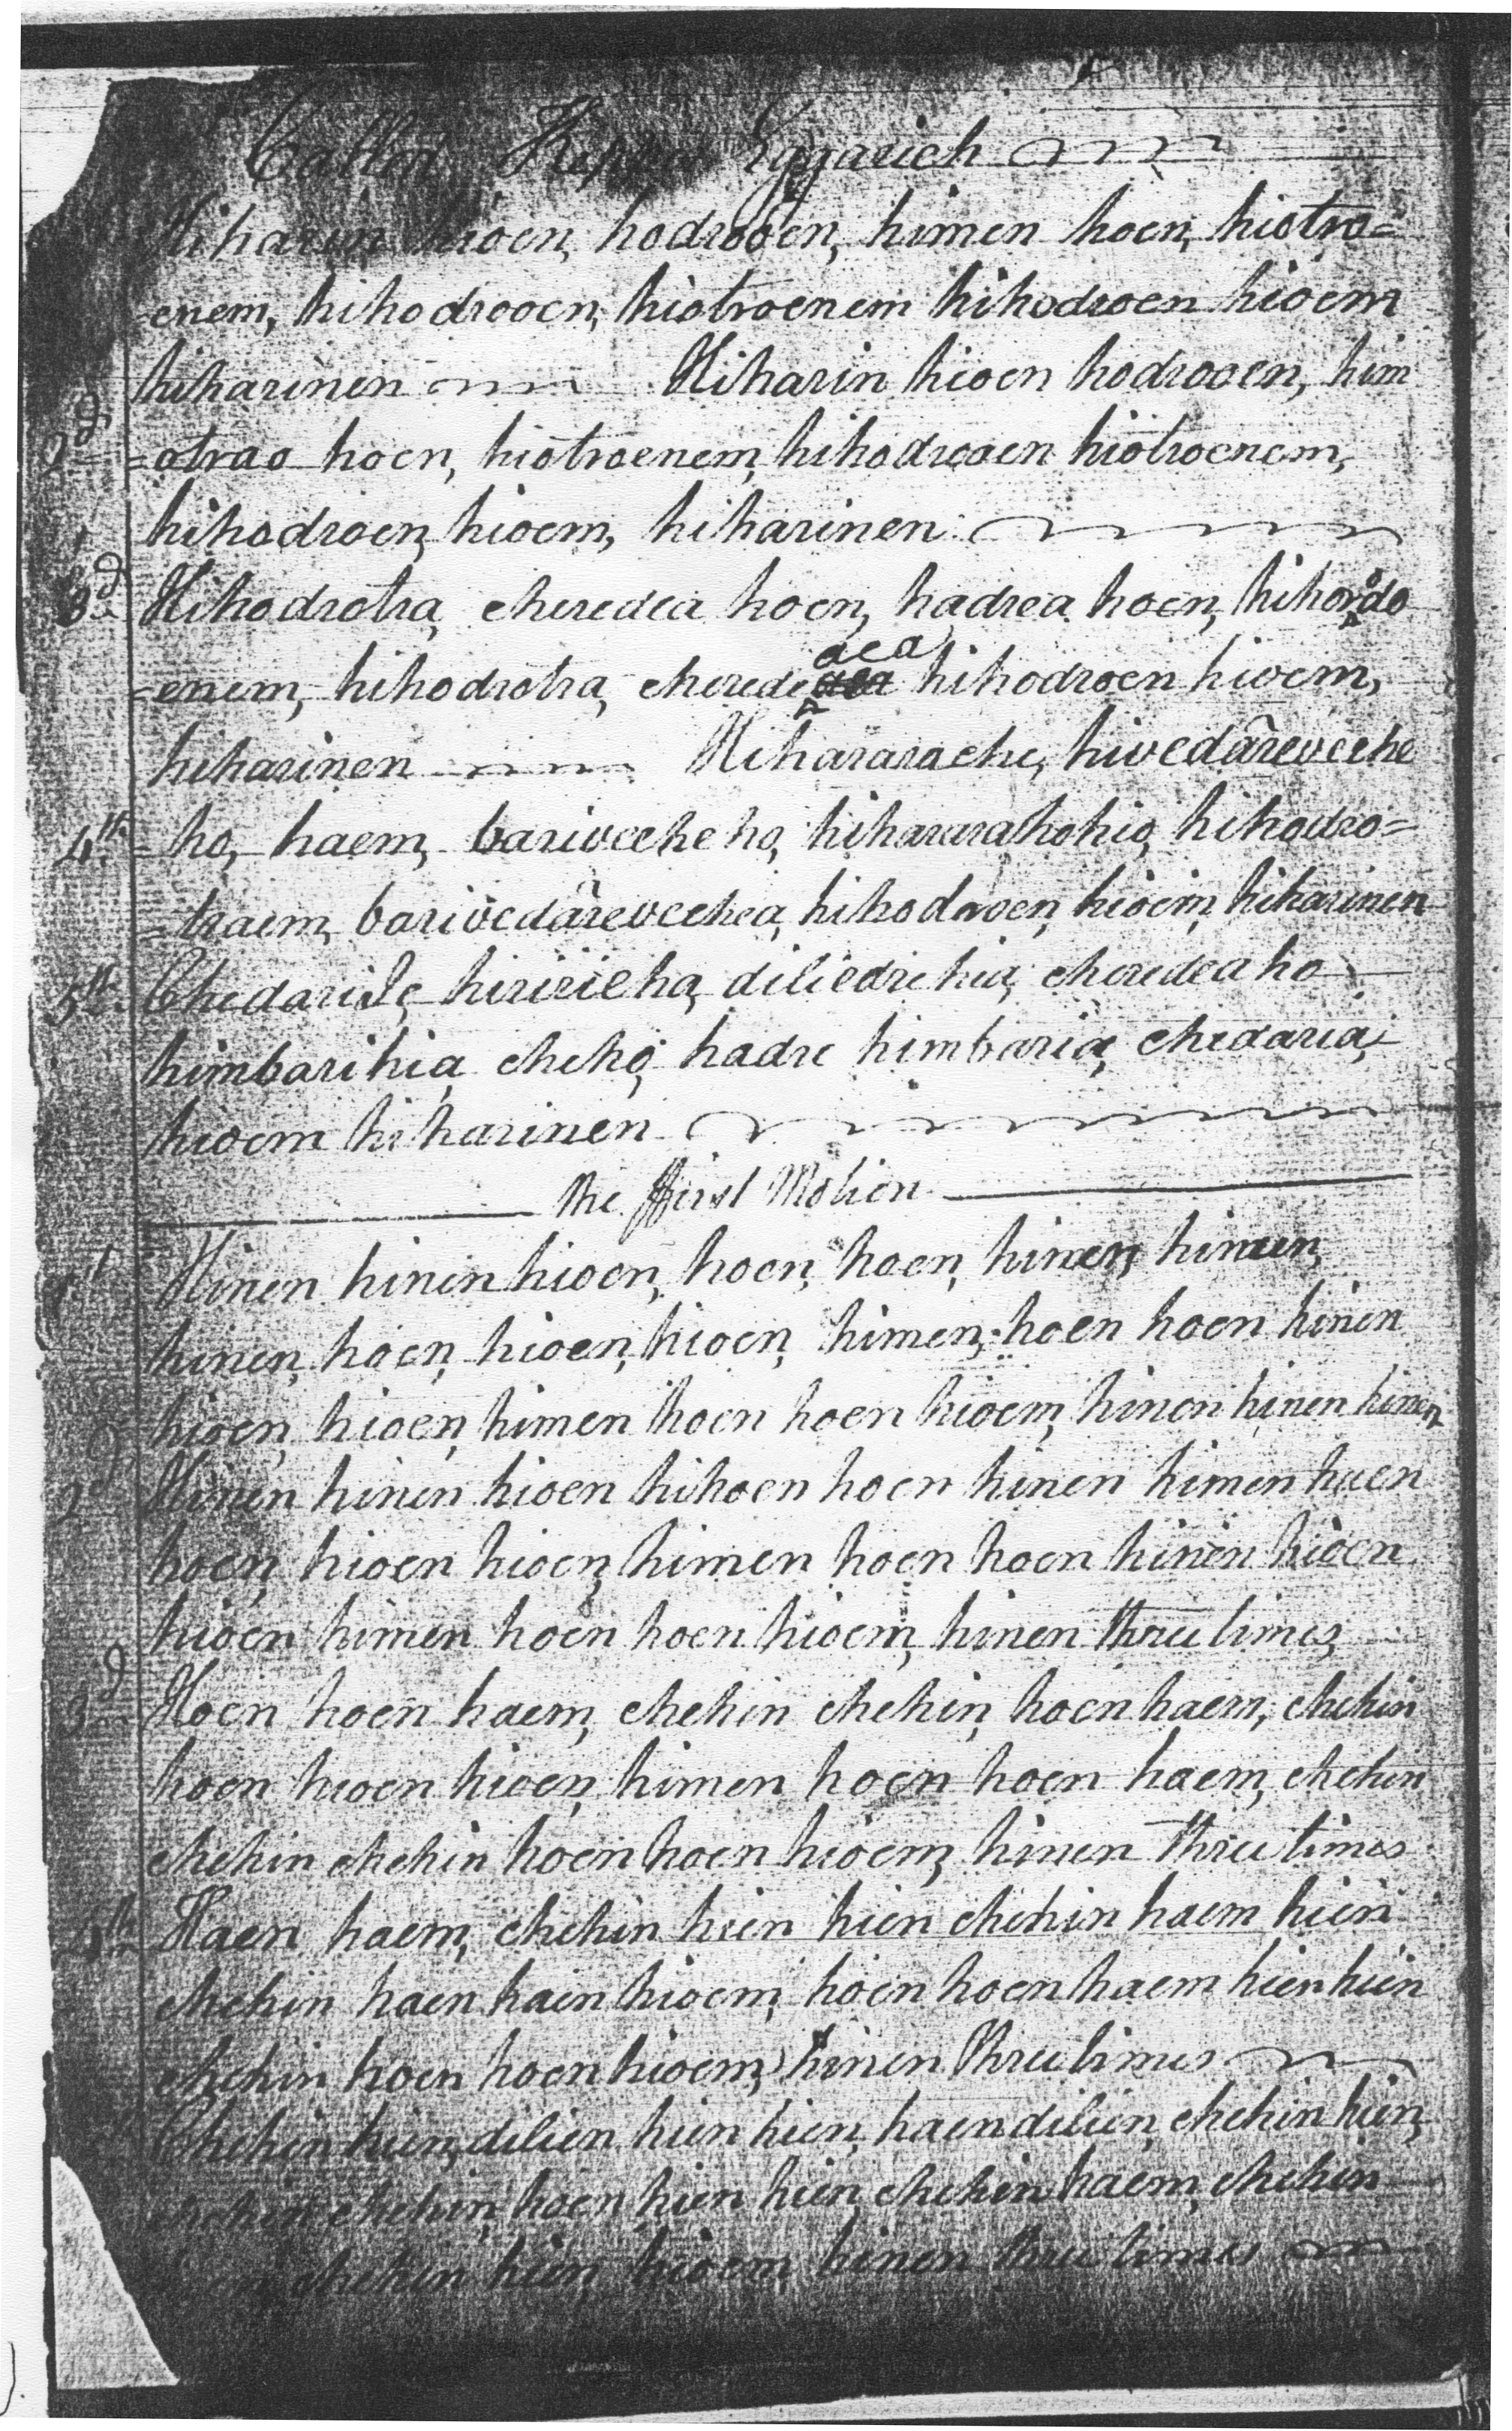 Called Kepper Eggarich
Hiharin hioen, hodrooen, himen hoen, hiotro=
=enem, hihodrooen, hiotroenem hihodroen hioem
hiharinen Hiharin hioen hodrooen, him
2d =otrao hoen, hiotroenem, hihodrooen hiotroenem,
hihodroen, hioem, hiharinen
3d Hihodrotra, cheredea hoen, hadrea hoen, hihorodo
=enem, hihodrotra, cherede aea hihodroen hioem,
hiharinen Hihararache, hivedâreveche
4th =ho, haem, bariveche ho, hihararahohio, hihodro=
=traem, barivedârevechea, hihodroen, hioem, hiharinen
5th Chedarile, hiririeha, diliedrehia, cheredea ho
himbarihia, cheho, hadre himbaria, chedaria,
hioem hiharinen
The ffirst Motion
1st Hinen hinen hioen, hoen, hoen, hinen, himen,
hinen, hoen, hioen, hioen, himen, hoen hoen hinen
hioen, hioen, himen hoen hoen hioem, hinen hinen hinen
2d Hinen hinen hioen hihoen hoen hinen himen huen
hoen, hioen hioen, himen hoen hoen hinen hioen
hioen himen hoen hoen hioem, hinen three times
3d Hoen hoen haem, chehin chehin, hoen haem, chehin
hoen hioen hioen, himen hoen hoen haem, chehin
chehin chehin hoen hoen hioem, hinen three times
4th Haen haem, chehin hien hien chehin haem hien
chehin haen haen hioem, hoen hoen haem hien hien
chehin hoen hoen hioem, hinen three times
Chehin hien, dilien hien hien, haen dilien, chehin hien,
chehin chehin, hoen hien hien, chehin haem, chehin
chehin hien, hioem, hinen three times